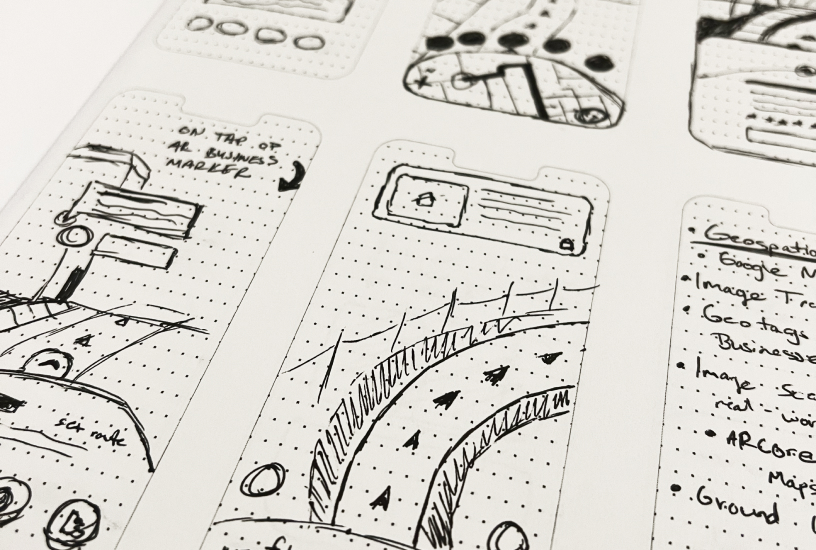 ON TAP OF
AR BUSINESS
MARKER
set route
• Geospatia
• Google M
• Image Tra
• Geotags
Businesse
• Image Sca
real-wor
• ARCore
Maps
• Ground